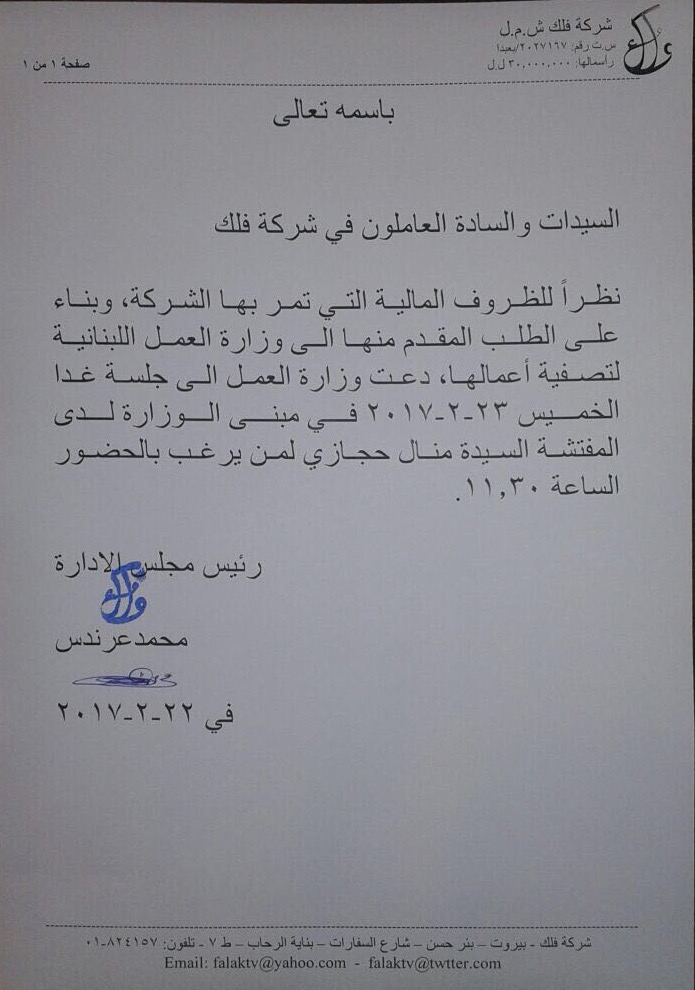 شركة فلك ش.م.ل
س.ت رقم: ٢٠٢٧١٦٧/بعبدا
رأسمالها: ٣٠,٠٠٠,٠٠٠ ل.ل
صفحة ١ من ١
باسمه تعالى
السيدات والسادة العاملون في شركة فلك
نظراً للظروف المالية التي تمر بها الشركة، وبناء
على الطلب المقدم منها الى وزارة العمل اللبنانية
لتصفية أعمالها، دعت وزارة العمل الى جلسة غدا
الخميس ٢٣-٢-٢٠١٧ في مبنى الوزارة لدى
المفتشة السيدة منال حجازي لمن يرغب بالحضور
الساعة ١١,٣٠.
رئيس مجلس الادارة
محمدعرندس
في ٢٢-٢-٢٠١٧
شركة فلك - بيروت – بئر حسن – شارع السفارات – بناية الرحاب – ط ٧ - تلفون: ٨٢٤١٥٧-٠١
Email: falaktv@yahoo.com - falaktv@twtter.com